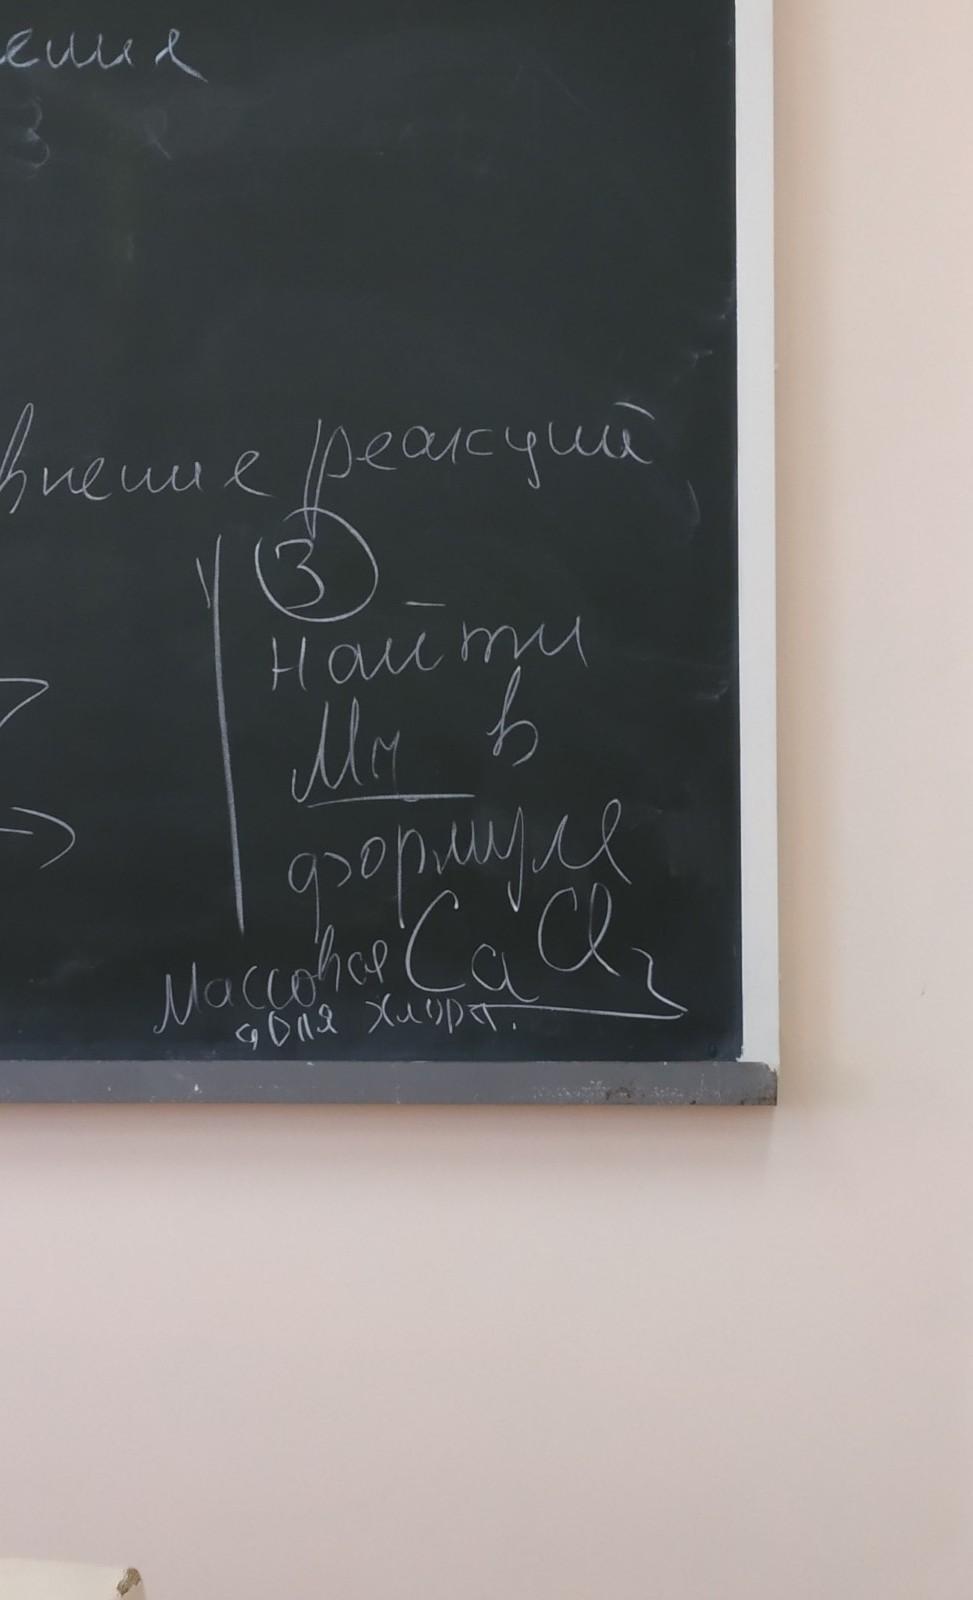 ения
3
внение реакций
3
Найти
Mr в
формуле
CaCl2
Массовая
доля хлора.